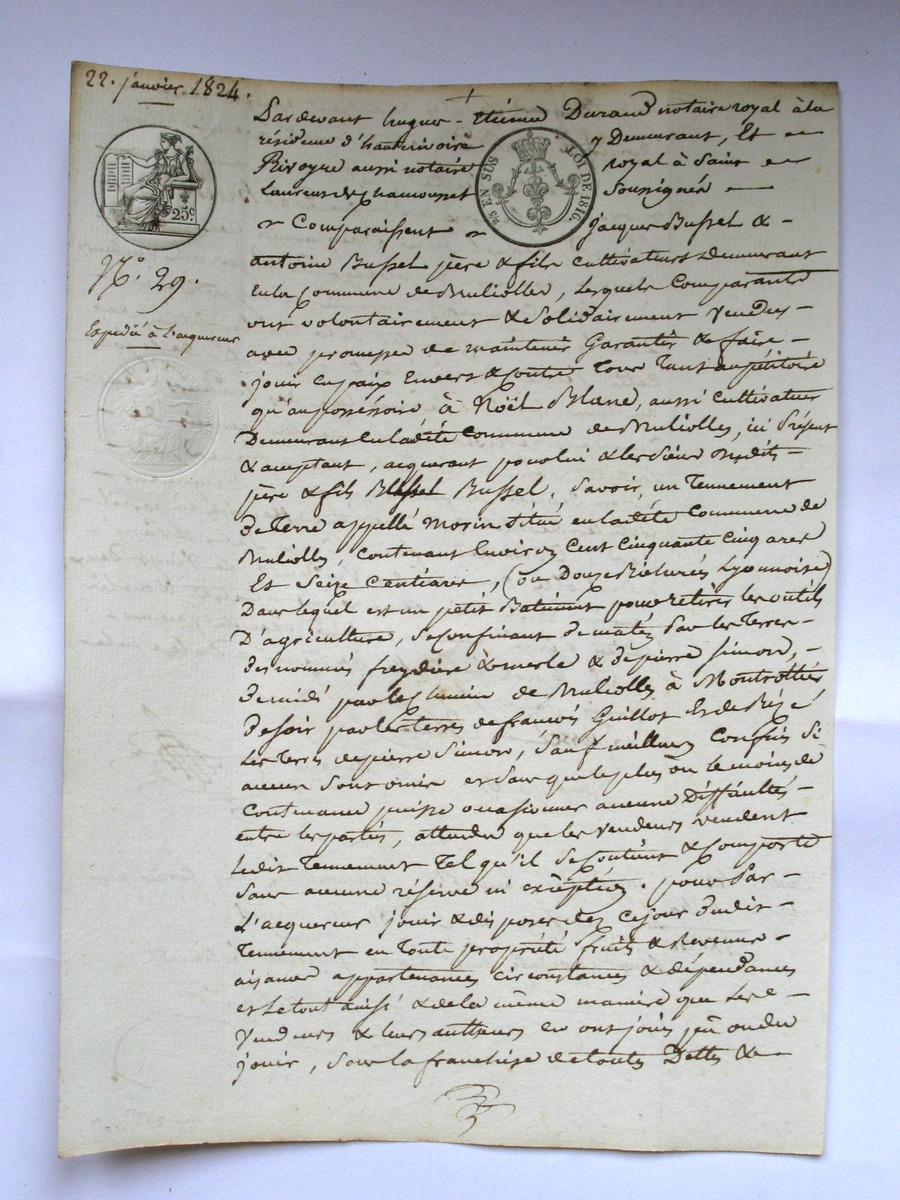 22. janvier 1824.
Pardevant hugues - Etienne Durand notaire royal à la
résidence d'hauterivoire y Demeurant, Et
Rivoyre aussi notaire royal à Saint
Laurent de Chamousset Soussignés
Comparaissent Jacques Bussel &
antoine Bussel père & fils cultivateurs Demeurant
En la Commune de Bruliolles, lesquels Comparants
ont volontairement & Solidairement Vendus
avec promesse de maintenir Garantir & faire
jouir en paix Envers & contre Tous Tant au pétitoire
qu'au possessoire à Noël Blanc, aussi Cultivateur
Demeurant En ladite Commune de Bruliolles, ici Présent
& acceptant, acquerant pour lui & les siens desdits
père & fils Bussel, Savoir, un Tennement
de Terre appellé Morin situé en ladite Commune de
Bruliolles, Contenant Environ Cent Cinquante Cinq ares
Et Seize Centiares, (ou Douze Bicherées Lyonnoises)
Dans lequel est un petit Batiment pour retirer les outils
D'agriculture, Se Confinant de matin Par les Terres
des nommés freydière & merle & de pierre Simon,
de midi par le Chemin de Bruliolles à Montrottier
de soir par les Terres de françois Guillot Et de Bise
les Terres de pierre Simon, Sauf meilleurs Confins Si
aucun Sont omis et Sans que le plus ou le moins de
Contenance puisse occasionner aucune Difficultés
entre les parties, attendu que les Vendeurs vendent
ledit Tennement Tel qu'il Se Contient & Comporte
Sans aucune réserve ni exception. pour Par
L'acquereur jouir & disposer dès ce jour dudit
Tennement en Toute propriété fruits & Revenus
aisances appartenances circonstances & dépendances
et le tout ainsi & de la même manière que les
Vendeurs & leurs autheurs en ont joui pû ou du
jouir, Sous la franchise de toutes Dettes &
25c.
25 EN SUS
LOI DE 1816.
N.° 29.
Expédié à L'acquereur